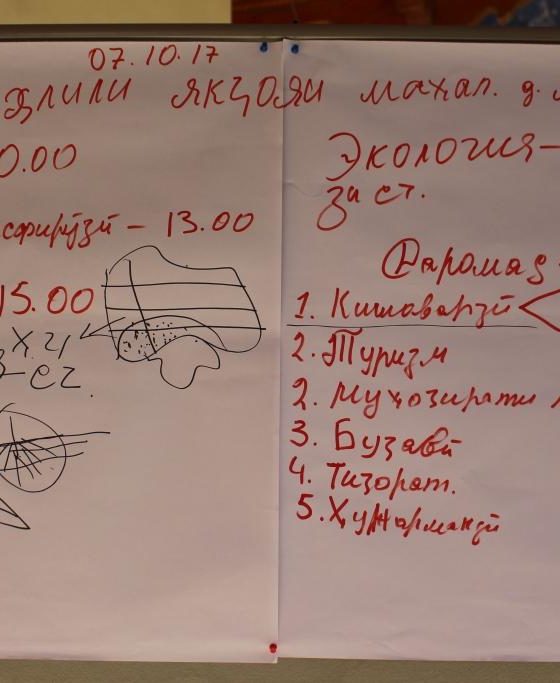 07.10.17
ҳлили якҷояи маҳал. д.
0.00
сфирӯзӣ – 13.00
15.00
ХЧ
Экология –
за ст.
Даромад
1. Кишоварзӣ
2. Туризм
2. Муҳозирати
3. Бузавӣ
4. Тизорат.
5. Ҳунармандӣ